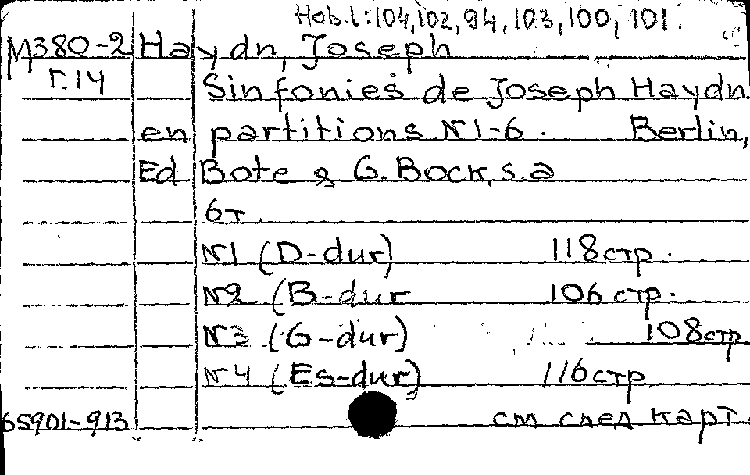 Hob. I: 104, 102, 94, 103, 100, 101.
М380-2 Haydn, Joseph
Г.14 Sinfonies de Joseph Haydn
en partitions N1-6. Berlin,
Ed Bote & G. Bock, s.a
6т.
N1 (D-dur) 118 стр.
N2 (B-dur 106 стр.
N3 (G-dur) 108 стр
N4 (Es-dur) 116 стр
65901-913 см след карт.